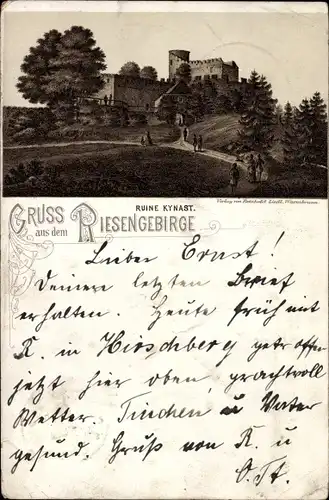 RUINE KYNAST.
Verlag von Reinhold Liedl, Warmbrunn.
GRUSS aus dem RIESENGEBIRGE
Lieber Ernst!
Deinen letzten Brief
erhalten. Heute früh mit
K. in Hirschberg getroffen
jetzt hier oben prachtvoll
Wetter. Tinchen u Vater
gesund. Gruß von K. u